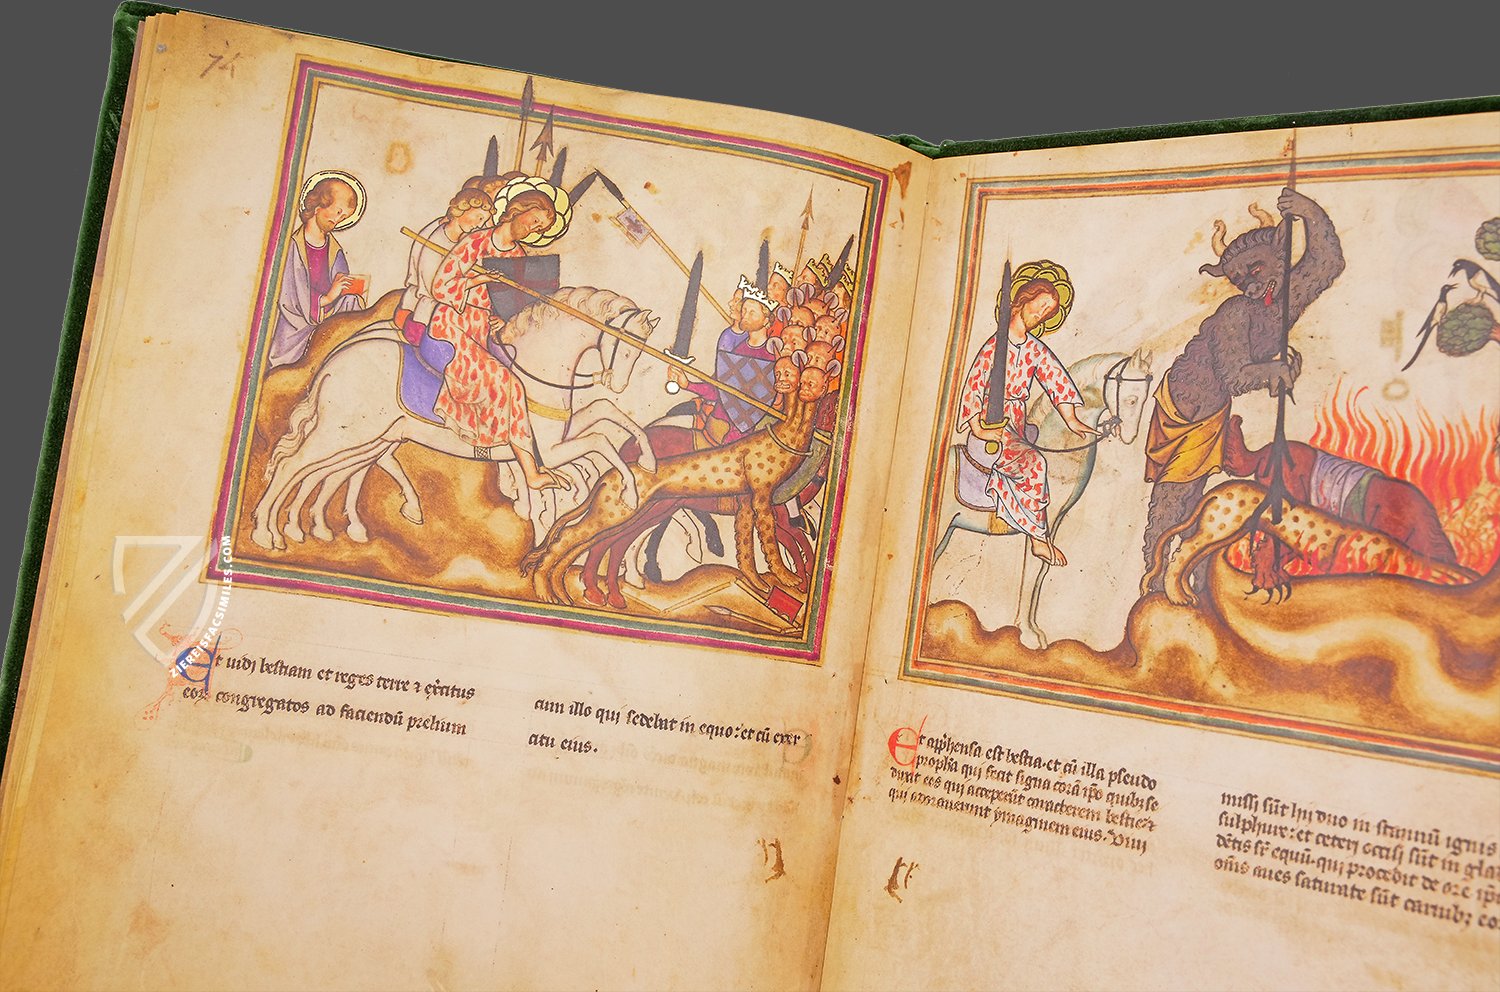 74
D
ZIEREISFACSIMILES.COM
Et uidj bestiam et reges terre ⁊ ex̄citus
eoꝝ congregatos ad faciendū prelium
cum illo qui sedebat in equo: et cū exer
citu eius.
Et app̄hensa est bestia. et cū illa pseudo
propħa qui fecit signa corā ip̄o quibus se
duxit eos qui acceperūt caracterem bestie ⁊
qui adorauerunt ymaginem eius. Viuj
missj sūt hij duo in stannū ignis
sulphure: et ceterj occisj sūt in gla
dētis sr̄ equū. qui procedit de ore ip̄i
om̄s aues saturate sūt carnibꝫ eo